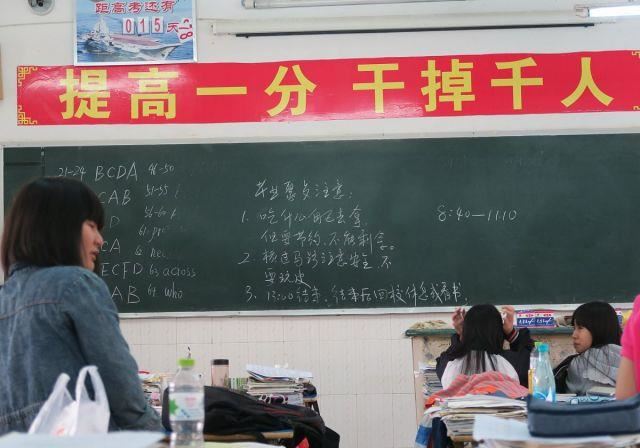 距高考还有
015天
提高一分 干掉千人
21-24 BCDA 46-50
CAB 51-55
D 56-60
CA
ECFD 63 across
AB 64 who
毕业聚餐注意:
1. 吃什么自己去拿,
但要节约,不能剩余。
2. 横过马路注意安全,不
要玩皮
3. 13:00结束,结束后回校休息或看书.
8:40—11:10